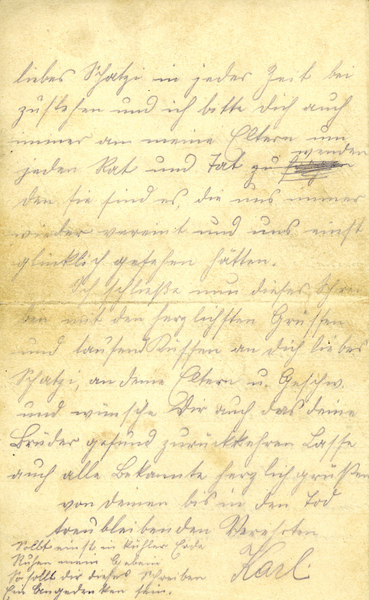 liebes Schatzi in jeder Zeit bei
zustehen und ich bitte dich auch
immer an meine Eltern um
jeden Rat und Tat zu wenden
den sie sind es, die uns immer
wieder vereint und uns einst
glücklich gesehen hätten.
Ich schließe nun dieses Schrei
ben mit den herzlichsten Grüßen
und tausend Küssen an dich liebes
Schatzi, an deine Eltern u. Geschw.
und wünsche Dir auch das deine
Brüder gesund zurückkehren Lasse
auch alle Bekannte herzlich grüßen
von deinen bis in den Tod
treubleibenden Verehrten
Karl.
Sollt einst in kühler Erde
Ruhen mein Gebein
So sollt dir dieses Schreiben
Ein Angedenken sein.